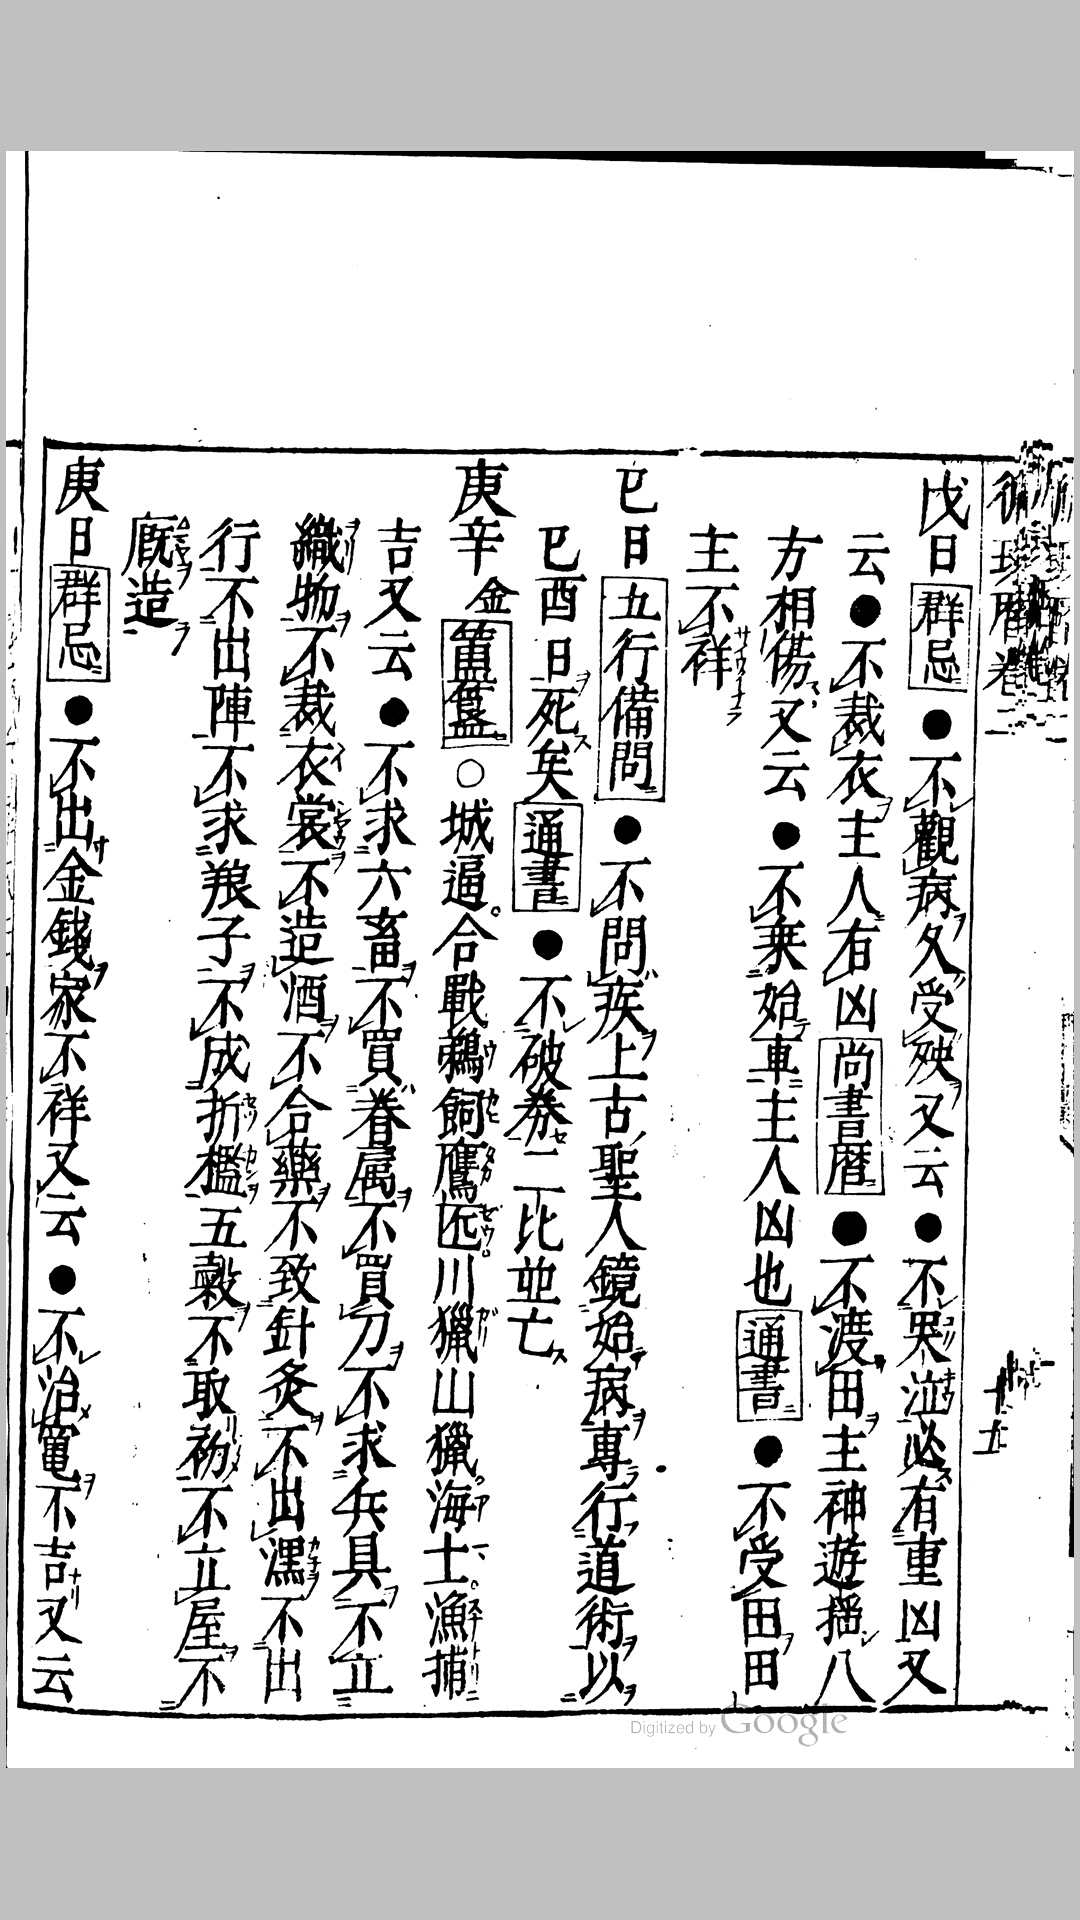 戊日群忌●不觀病久受殃又云●不哭泣必有重凶又
云●不裁衣主人有凶尚書暦●不渡田主神遊揺八
方相傷又云●不乗始車主人凶也通書●不受田田
主不祥
已日五行備問●不問疾上古聖人鏡始病專行道術以
已酉日死矣通書●不破劵二比並亡
庚辛金簠簋○城逼合戰鵜飼鷹匠川獵山獵海士漁捕
吉又云●不求六畜不買眷属不買刀不求兵具不立
織物不裁衣裳不造酒不合藥不致針灸不出濕不出
行不出陣不求粮子不成折檻五穀不取初不立屋不
厩造
庚日群忌●不出金錢家不祥又云●不治竃不吉又云
十五
Digitized by Google